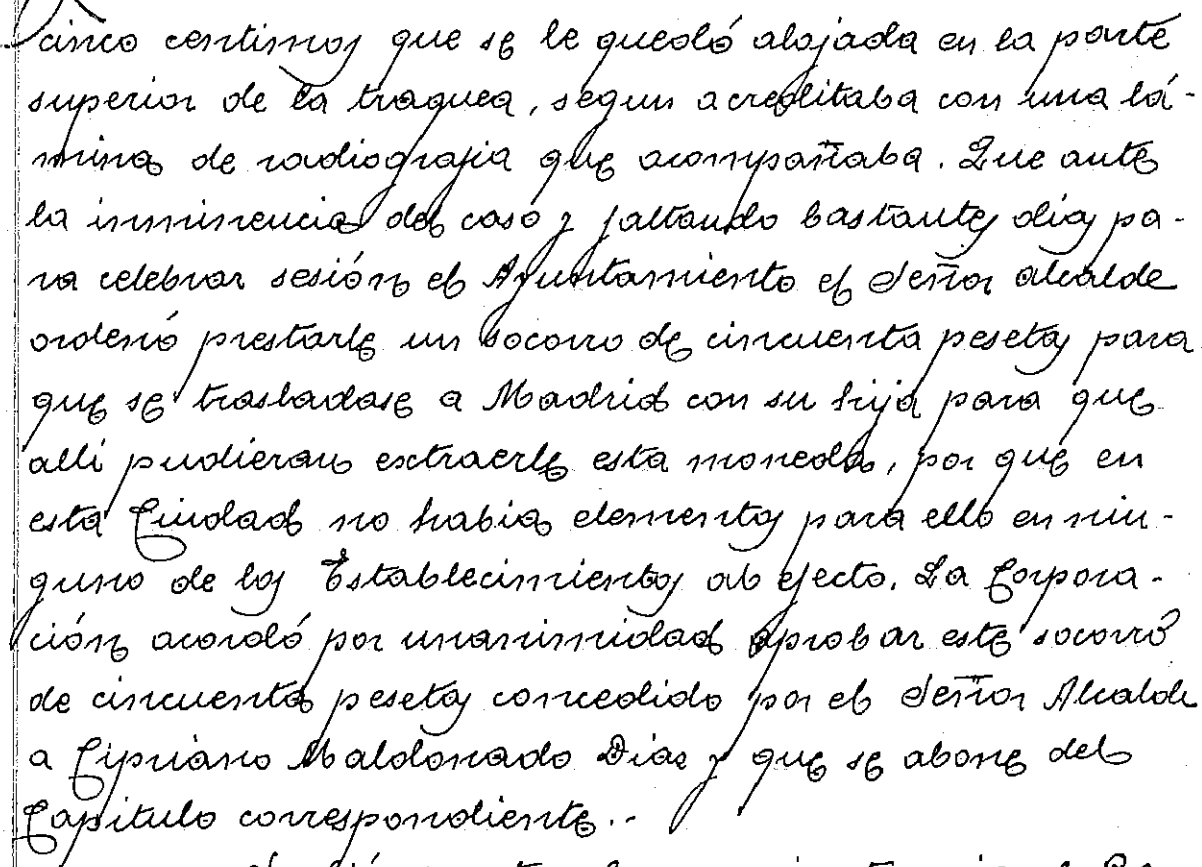 cinco centimos que se le quedó alojada en la parte
superior de la traquea, segun acreditaba con una lá-
mina de radiografia que acompañaba. Que ante
la inminencia del caso y faltando bastantes dias pa-
ra celebrar sesión el Ayuntamiento el Señor alcalde
ordenó prestarle un socorro de cincuenta pesetas para
que se trasladase a Madrid con su hija para que
alli pudieran extraerle esta moneda, por que en
esta Ciudad no habia elementos para ello en nin-
guno de los Establecimientos al efecto. La Corpora-
ción acordó por unanimidad aprobar este socorro
de cincuenta pesetas concedido por el Señor Alcalde
a Cipriano Maldonado Diaz y que se abone del
Capitulo correspondiente..